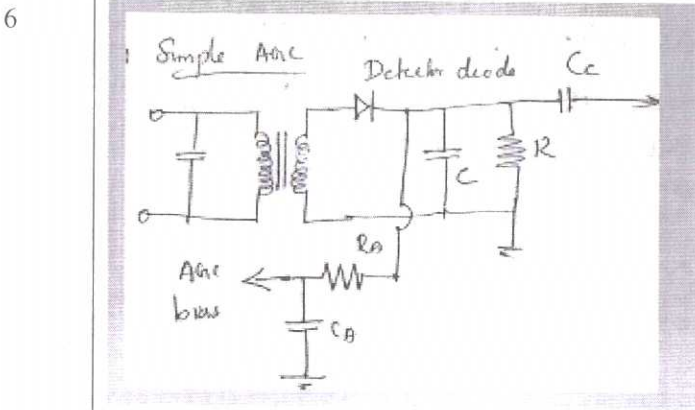 6
Simple AGC
Detector diode
Cc
R
C
RA
AGC
bias
CA